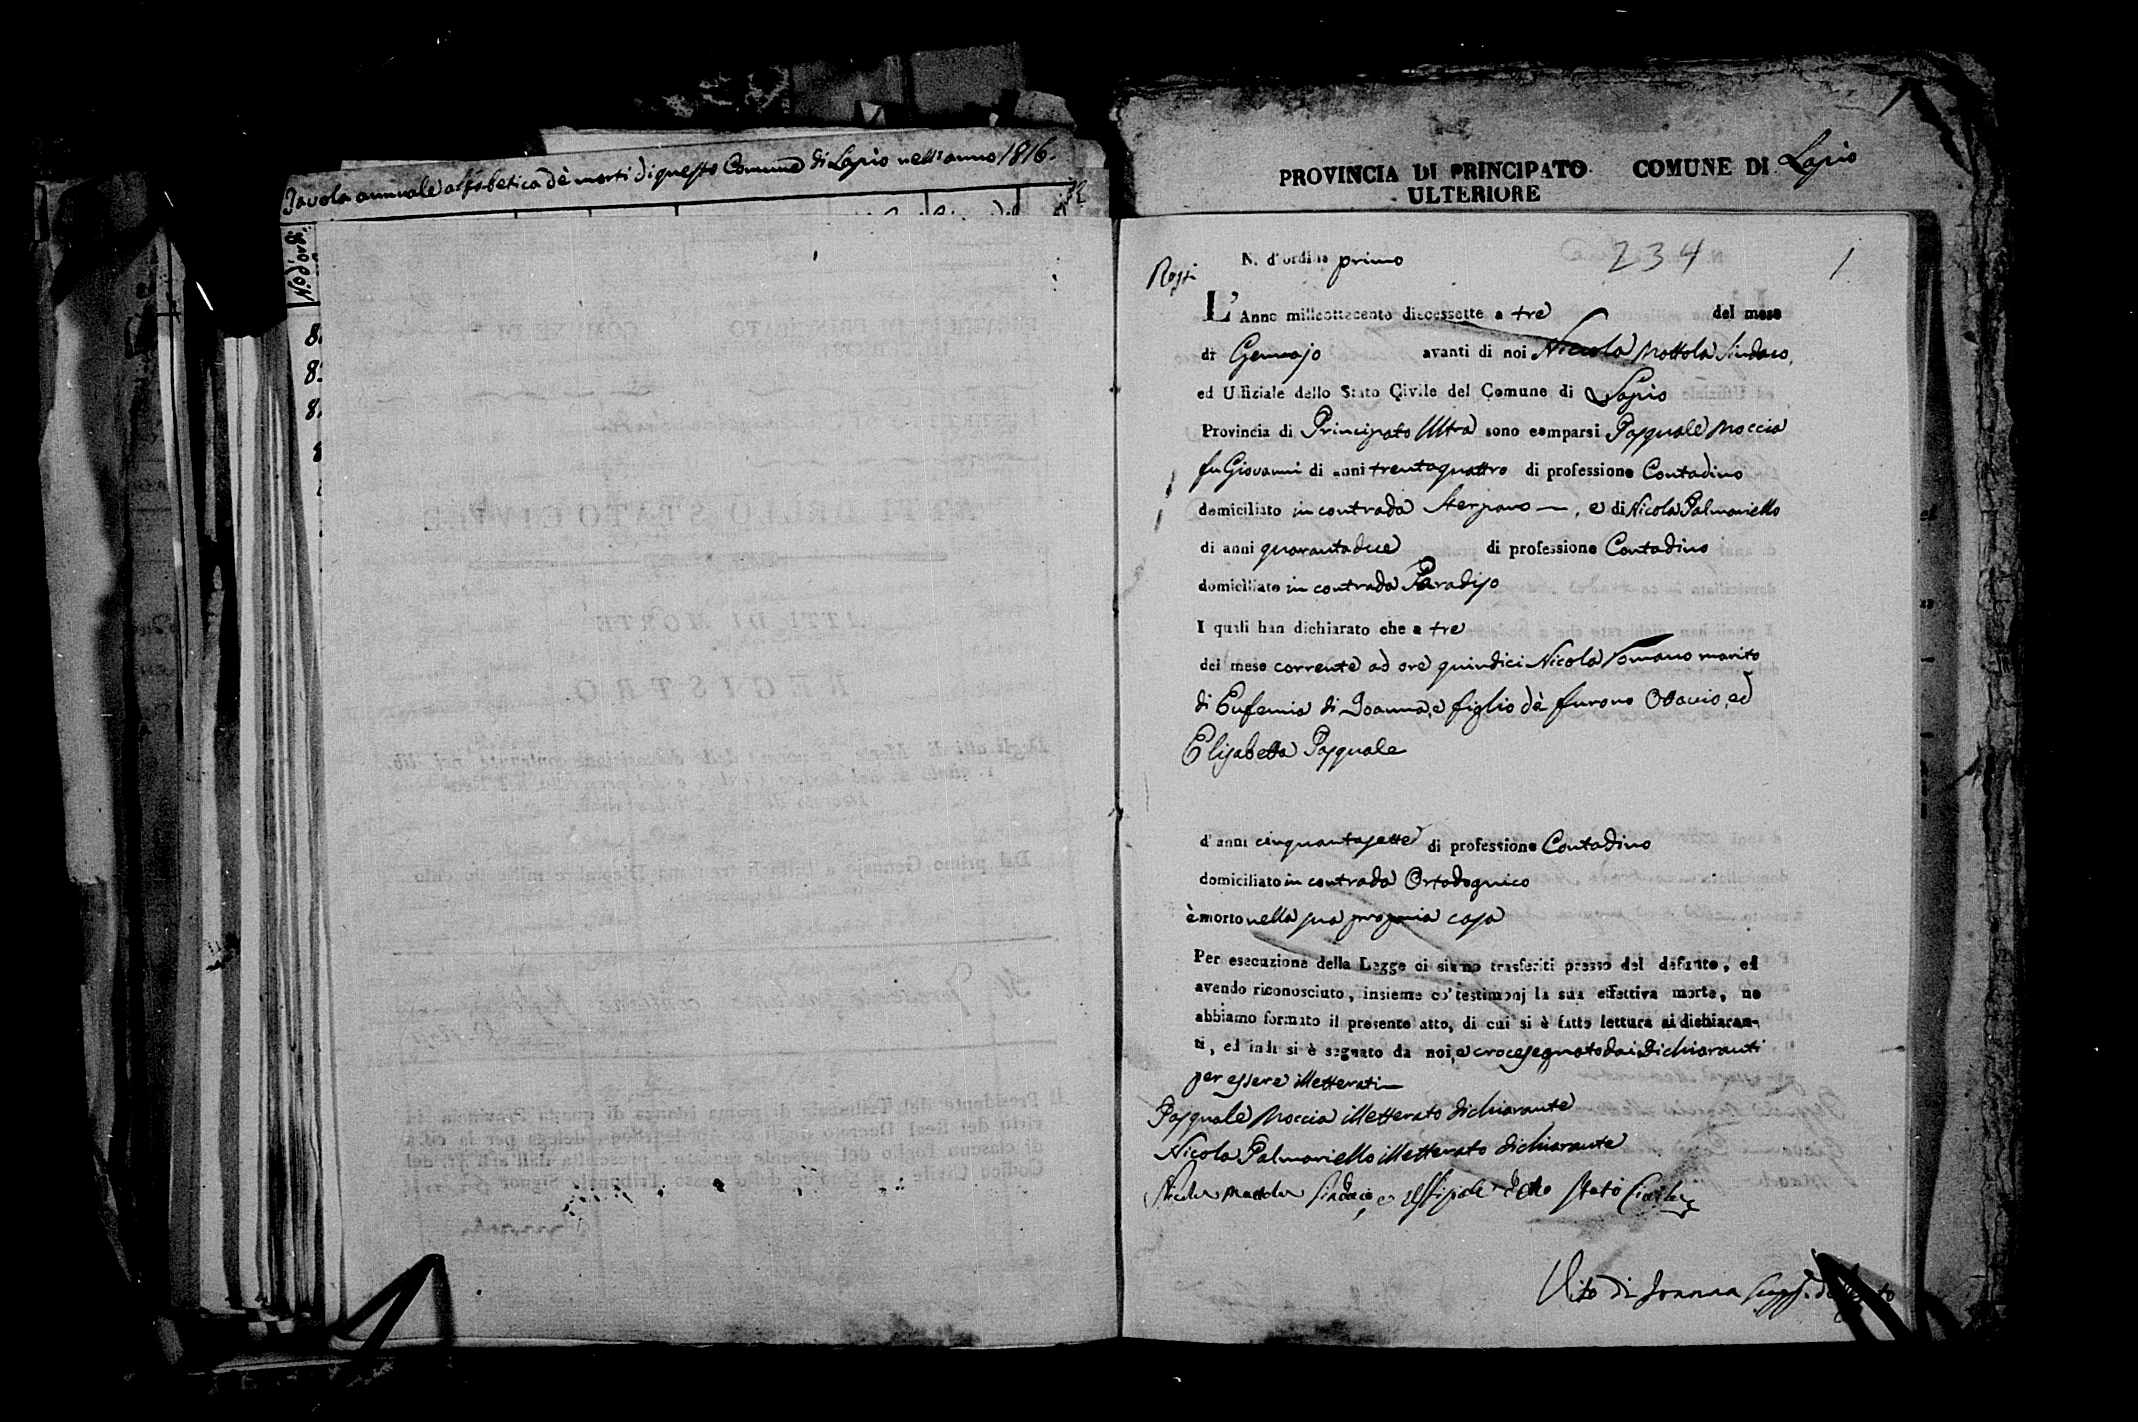 Tavola annuale alfabetica dè morti di questo Comune di Lapio nell'anno 1816.
N.o d'ord:
PROVINCIA DI PRINCIPATO COMUNE DI Lapio
ULTERIORE
N. d'ordine primo 234 1
L'Anno milleottocento diecessette a tre del mese
di Gennajo avanti di noi Nicola Mottola Sindaco,
ed Uffiziale dello Stato Civile del Comune di Lapio
Provincia di Principato Ultra sono comparsi Pasquale Moccia
fu Giovanni di anni trentaquattro di professione Contadino
domiciliato in contrada Sterpano, e di Nicola Palmariello
di anni quarantadue di professione Contadino
domiciliato in contrada Paradiso
I quali han dichiarato che a tre
del mese corrente ad ore quindici Nicola Romano marito
di Eufemia di Joanna, e figlio dè furono Ottavio, ed
Elisabetta Pasquale
d'anni cinquantasette di professione Contadino
domiciliato in contrada Ortodognico
è morto nella sua propria casa
Per esecuzione della Legge ci siamo trasferiti presso del defunto, ed
avendo riconosciuto, insieme co' testimonj la sua effettiva morte, ne
abbiamo formato il presente atto, di cui si è fatto lettura ai dichiaran-
ti, ed indi si è segnato da noi, e crocesegnato dai dichiaranti
per essere illetterati
Pasquale Moccia illetterato dichiarante
Nicola Palmariello illetterato dichiarante
Nicola Mottola Sindaco, e Uffiziale dello Stato Civile
Vito di Joanna